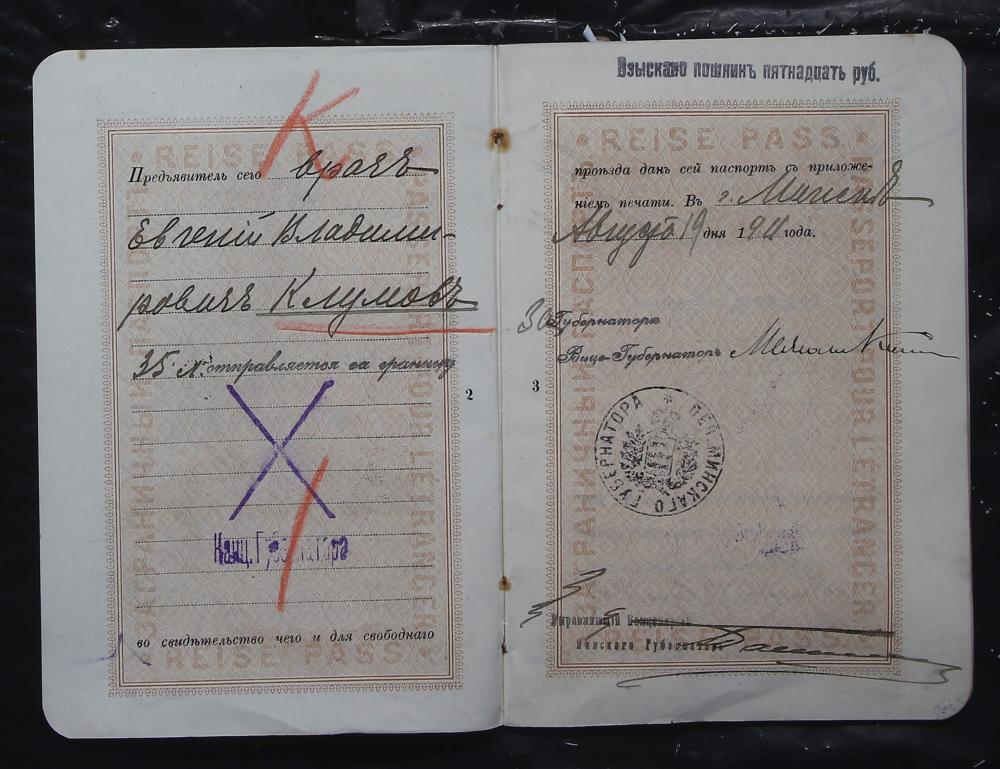 К
REISE PASS
Предъявитель сего врачъ
Евгеній Владими-
ровичъ Клумовъ
35 л. отправляется за границу
Канц. Губернатора
во свидѣтельство чего и для свободнаго
REISE PASS
ЗАГРАНИЧНЫЙ ПАСПОРТЪ
PASSEPORT POUR L'ÉTRANGER
2
Взыскано пошлинъ пятнадцать руб.
REISE PASS
проѣзда данъ сей паспортъ съ приложе-
ніемъ печати. Въ г. Минскѣ
Августа 19 дня 1911 года.
За Губернатора
Вице-Губернаторъ
3
ПЕЧ. МИНСКАГО ГУБЕРНАТОРА
Управляющій Канцеляріей
Минскаго Губернатора
ЗАГРАНИЧНЫЙ ПАСПОРТЪ
PASSEPORT POUR L'ÉTRANGER
REISE PASS